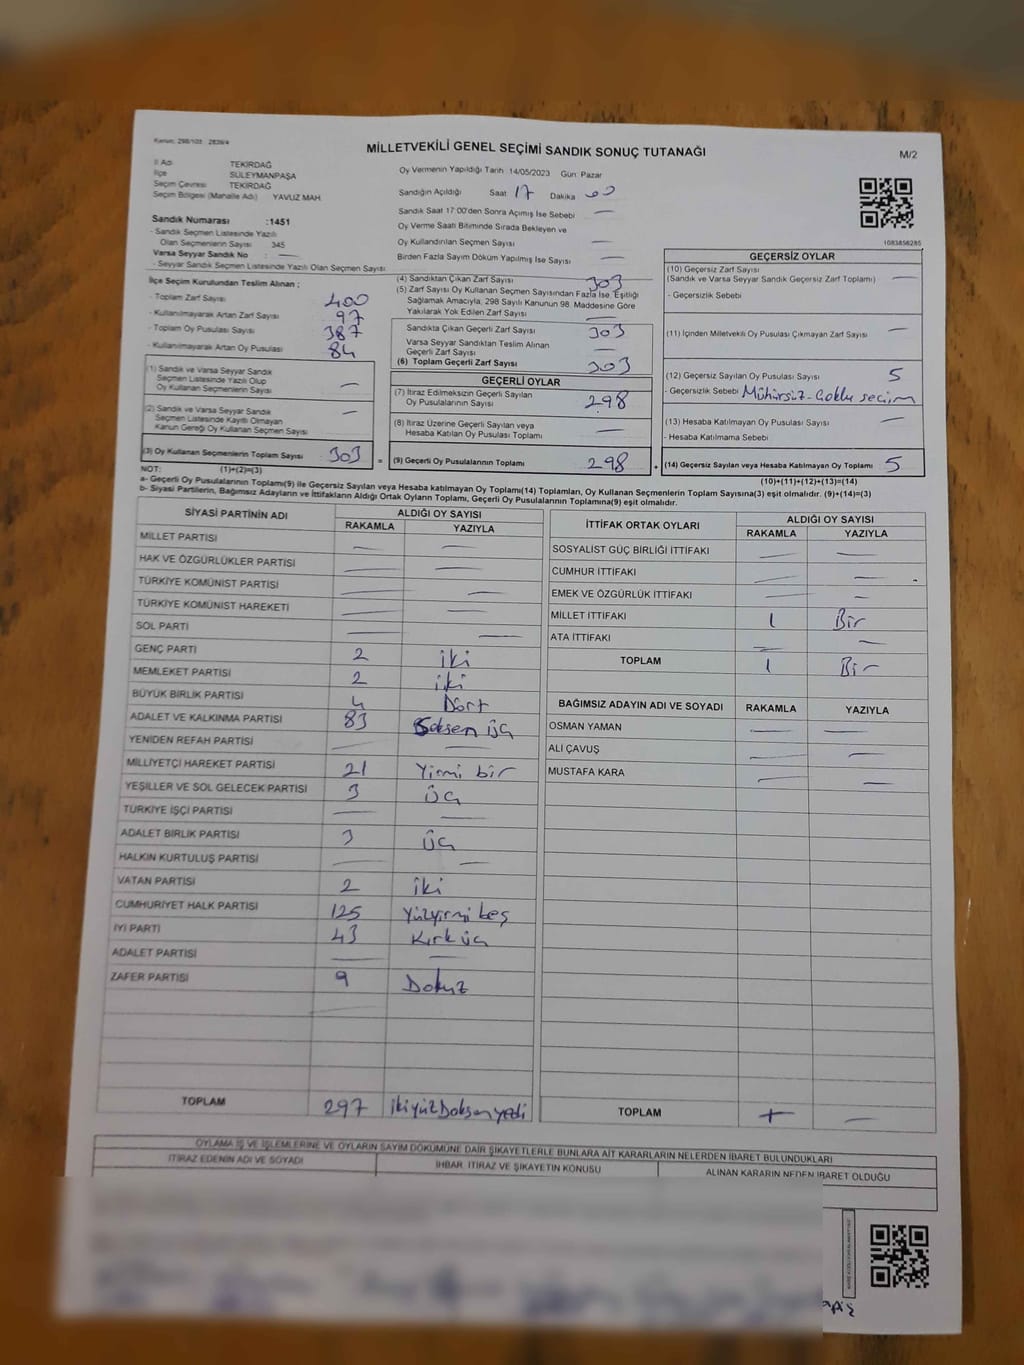 Kanun: 298/103 2839/4
MİLLETVEKİLİ GENEL SEÇİMİ SANDIK SONUÇ TUTANAĞI
M/2
İl Adı TEKİRDAĞ
İlçe SÜLEYMANPAŞA
Seçim Çevresi TEKİRDAĞ
Seçim Bölgesi (Mahalle Adı) YAVUZ MAH.
Sandık Numarası :1451
- Sandık Seçmen Listesinde Yazılı
Olan Seçmenlerin Sayısı 345
Varsa Seyyar Sandık No : —
- Seyyar Sandık Seçmen Listesinde Yazılı Olan Seçmen Sayısı
Oy Vermenin Yapıldığı Tarih 14/05/2023 Gün: Pazar
Sandığın Açıldığı Saat 17 Dakika 00
Sandık Saat 17:00'den Sonra Açımış İse Sebebi —
Oy Verme Saati Bitiminde Sırada Bekleyen ve
Oy Kullandırılan Seçmen Sayısı —
Birden Fazla Sayım Döküm Yapılmış İse Sayısı —
1083856285
İlçe Seçim Kurulundan Teslim Alınan ;
- Toplam Zarf Sayısı 400
- Kullanılmayarak Artan Zarf Sayısı 97
- Toplam Oy Pusulası Sayısı 387
- Kullanılmayarak Artan Oy Pusulası 84
(1) Sandık ve Varsa Seyyar Sandık
Seçmen Listesinde Yazılı Olup
Oy Kullanan Seçmenlerin Sayısı —
(2) Sandık ve Varsa Seyyar Sandık
Seçmen Listesinde Kayıtlı Olmayan
Kanun Gereği Oy Kullanan Seçmen Sayısı —
(3) Oy Kullanan Seçmenlerin Toplam Sayısı 303 =
(4) Sandıktan Çıkan Zarf Sayısı 303
(5) Zarf Sayısı Oy Kullanan Seçmen Sayısından Fazla İse, Eşitliği
Sağlamak Amacıyla, 298 Sayılı Kanunun 98. Maddesine Göre
Yakılarak Yok Edilen Zarf Sayısı —
Sandıkta Çıkan Geçerli Zarf Sayısı 303
Varsa Seyyar Sandıktan Teslim Alınan
Geçerli Zarf Sayısı —
(6) Toplam Geçerli Zarf Sayısı 303
GEÇERLİ OYLAR
(7) İtiraz Edilmeksizin Geçerli Sayılan
Oy Pusulalarının Sayısı 298
(8) İtiraz Üzerine Geçerli Sayılan veya
Hesaba Katılan Oy Pusulası Toplamı —
(9) Geçerli Oy Pusulalarının Toplamı 298 +
GEÇERSİZ OYLAR
(10) Geçersiz Zarf Sayısı
(Sandık ve Varsa Seyyar Sandık Geçersiz Zarf Toplamı) —
- Geçersizlik Sebebi
(11) İçinden Milletvekili Oy Pusulası Çıkmayan Zarf Sayısı —
(12) Geçersiz Sayılan Oy Pusulası Sayısı 5
- Geçersizlik Sebebi Mühürsüz-Çoklu seçim
(13) Hesaba Katılmayan Oy Pusulası Sayısı —
- Hesaba Katılmama Sebebi
(14) Geçersiz Sayılan veya Hesaba Katılmayan Oy Toplamı 5
NOT: (1)+(2)=(3)
(10)+(11)+(12)+(13)=(14)
a- Geçerli Oy Pusulalarının Toplamı(9) ile Geçersiz Sayılan veya Hesaba Katılmayan Oy Toplamı(14) Toplamları, Oy Kullanan Seçmenlerin Toplam Sayısına(3) eşit olmalıdır. (9)+(14)=(3)
b- Siyasi Partilerin, Bağımsız Adayların ve İttifakların Aldığı Ortak Oyların Toplamı, Geçerli Oy Pusulalarının Toplamına(9) eşit olmalıdır.
SİYASİ PARTİNİN ADI ALDIĞI OY SAYISI
RAKAMLA YAZIYLA
MİLLET PARTİSİ — —
HAK VE ÖZGÜRLÜKLER PARTİSİ — —
TÜRKİYE KOMÜNİST PARTİSİ — —
TÜRKİYE KOMÜNİST HAREKETİ — —
SOL PARTİ — —
GENÇ PARTİ 2 iki
MEMLEKET PARTİSİ 2 iki
BÜYÜK BİRLİK PARTİSİ 4 Dört
ADALET VE KALKINMA PARTİSİ 83 Seksen üç
YENİDEN REFAH PARTİSİ — —
MİLLİYETÇİ HAREKET PARTİSİ 21 Yirmi bir
YEŞİLLER VE SOL GELECEK PARTİSİ 3 üç
TÜRKİYE İŞÇİ PARTİSİ — —
ADALET BİRLİK PARTİSİ 3 üç
HALKIN KURTULUŞ PARTİSİ — —
VATAN PARTİSİ 2 iki
CUMHURİYET HALK PARTİSİ 125 Yüzyirmi beş
İYİ PARTİ 43 Kırk üç
ADALET PARTİSİ — —
ZAFER PARTİSİ 9 Dokuz
TOPLAM 297 ikiyüzDoksanyedi
İTTİFAK ORTAK OYLARI ALDIĞI OY SAYISI
RAKAMLA YAZIYLA
SOSYALİST GÜÇ BİRLİĞİ İTTİFAKI — —
CUMHUR İTTİFAKI — —
EMEK VE ÖZGÜRLÜK İTTİFAKI — —
MİLLET İTTİFAKI 1 Bir
ATA İTTİFAKI — —
TOPLAM 1 Bir
BAĞIMSIZ ADAYIN ADI VE SOYADI RAKAMLA YAZIYLA
OSMAN YAMAN — —
ALİ ÇAVUŞ — —
MUSTAFA KARA — —
TOPLAM — —
OYLAMA İŞ VE İŞLEMLERİNE VE OYLARIN SAYIM DÖKÜMÜNE DAİR ŞİKAYETLERLE BUNLARA AİT KARARLARIN NELERDEN İBARET BULUNDUKLARI
İTİRAZ EDENİN ADI VE SOYADI İHBAR, İTİRAZ VE ŞİKAYETİN KONUSU ALINAN KARARIN NEDEN İBARET OLDUĞU